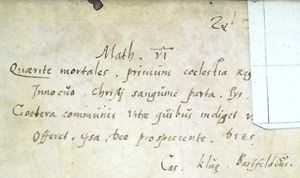 Math. VI
Quærite mortales, primum coelestia
Innocuo Christj sanguine parta.
Cætera communis vitæ quibus indiget
Offeret, ipsa, Deo prospiciente, DIES
Cas. Klug